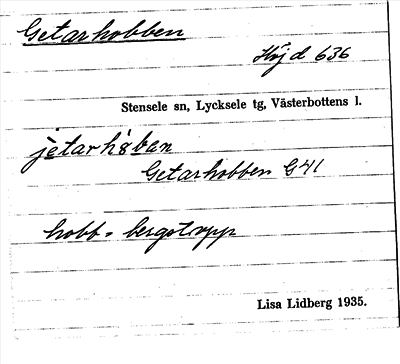 Getarhobben
Höjd 636
Stensele sn, Lycksele tg, Västerbottens l.
jètarhòben
Getarhobben G41
hobb = bergstopp
Lisa Lidberg 1935.